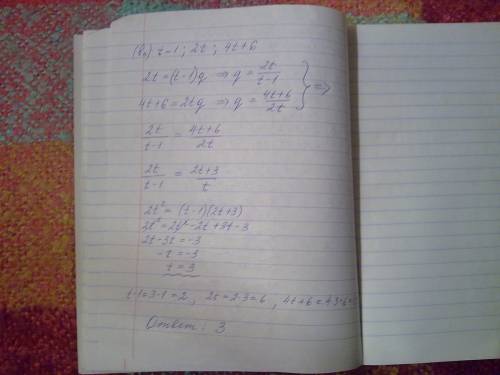 (bₙ) t-1 ; 2t ; 4t+6
2t = (t-1)q ⇒ q = 2t/(t-1)
4t+6 = 2tq ⇒ q = (4t+6)/2t } ⇒
2t/(t-1) = (4t+6)/2t
2t/(t-1) = (2t+3)/t
2t² = (t-1)(2t+3)
2t² = 2t² - 2t + 3t - 3
2t - 3t = -3
-t = -3
t = 3
t-1 = 3-1 = 2 , 2t = 2·3 = 6 , 4t+6 = 4·3+6 =
Ответ: 3